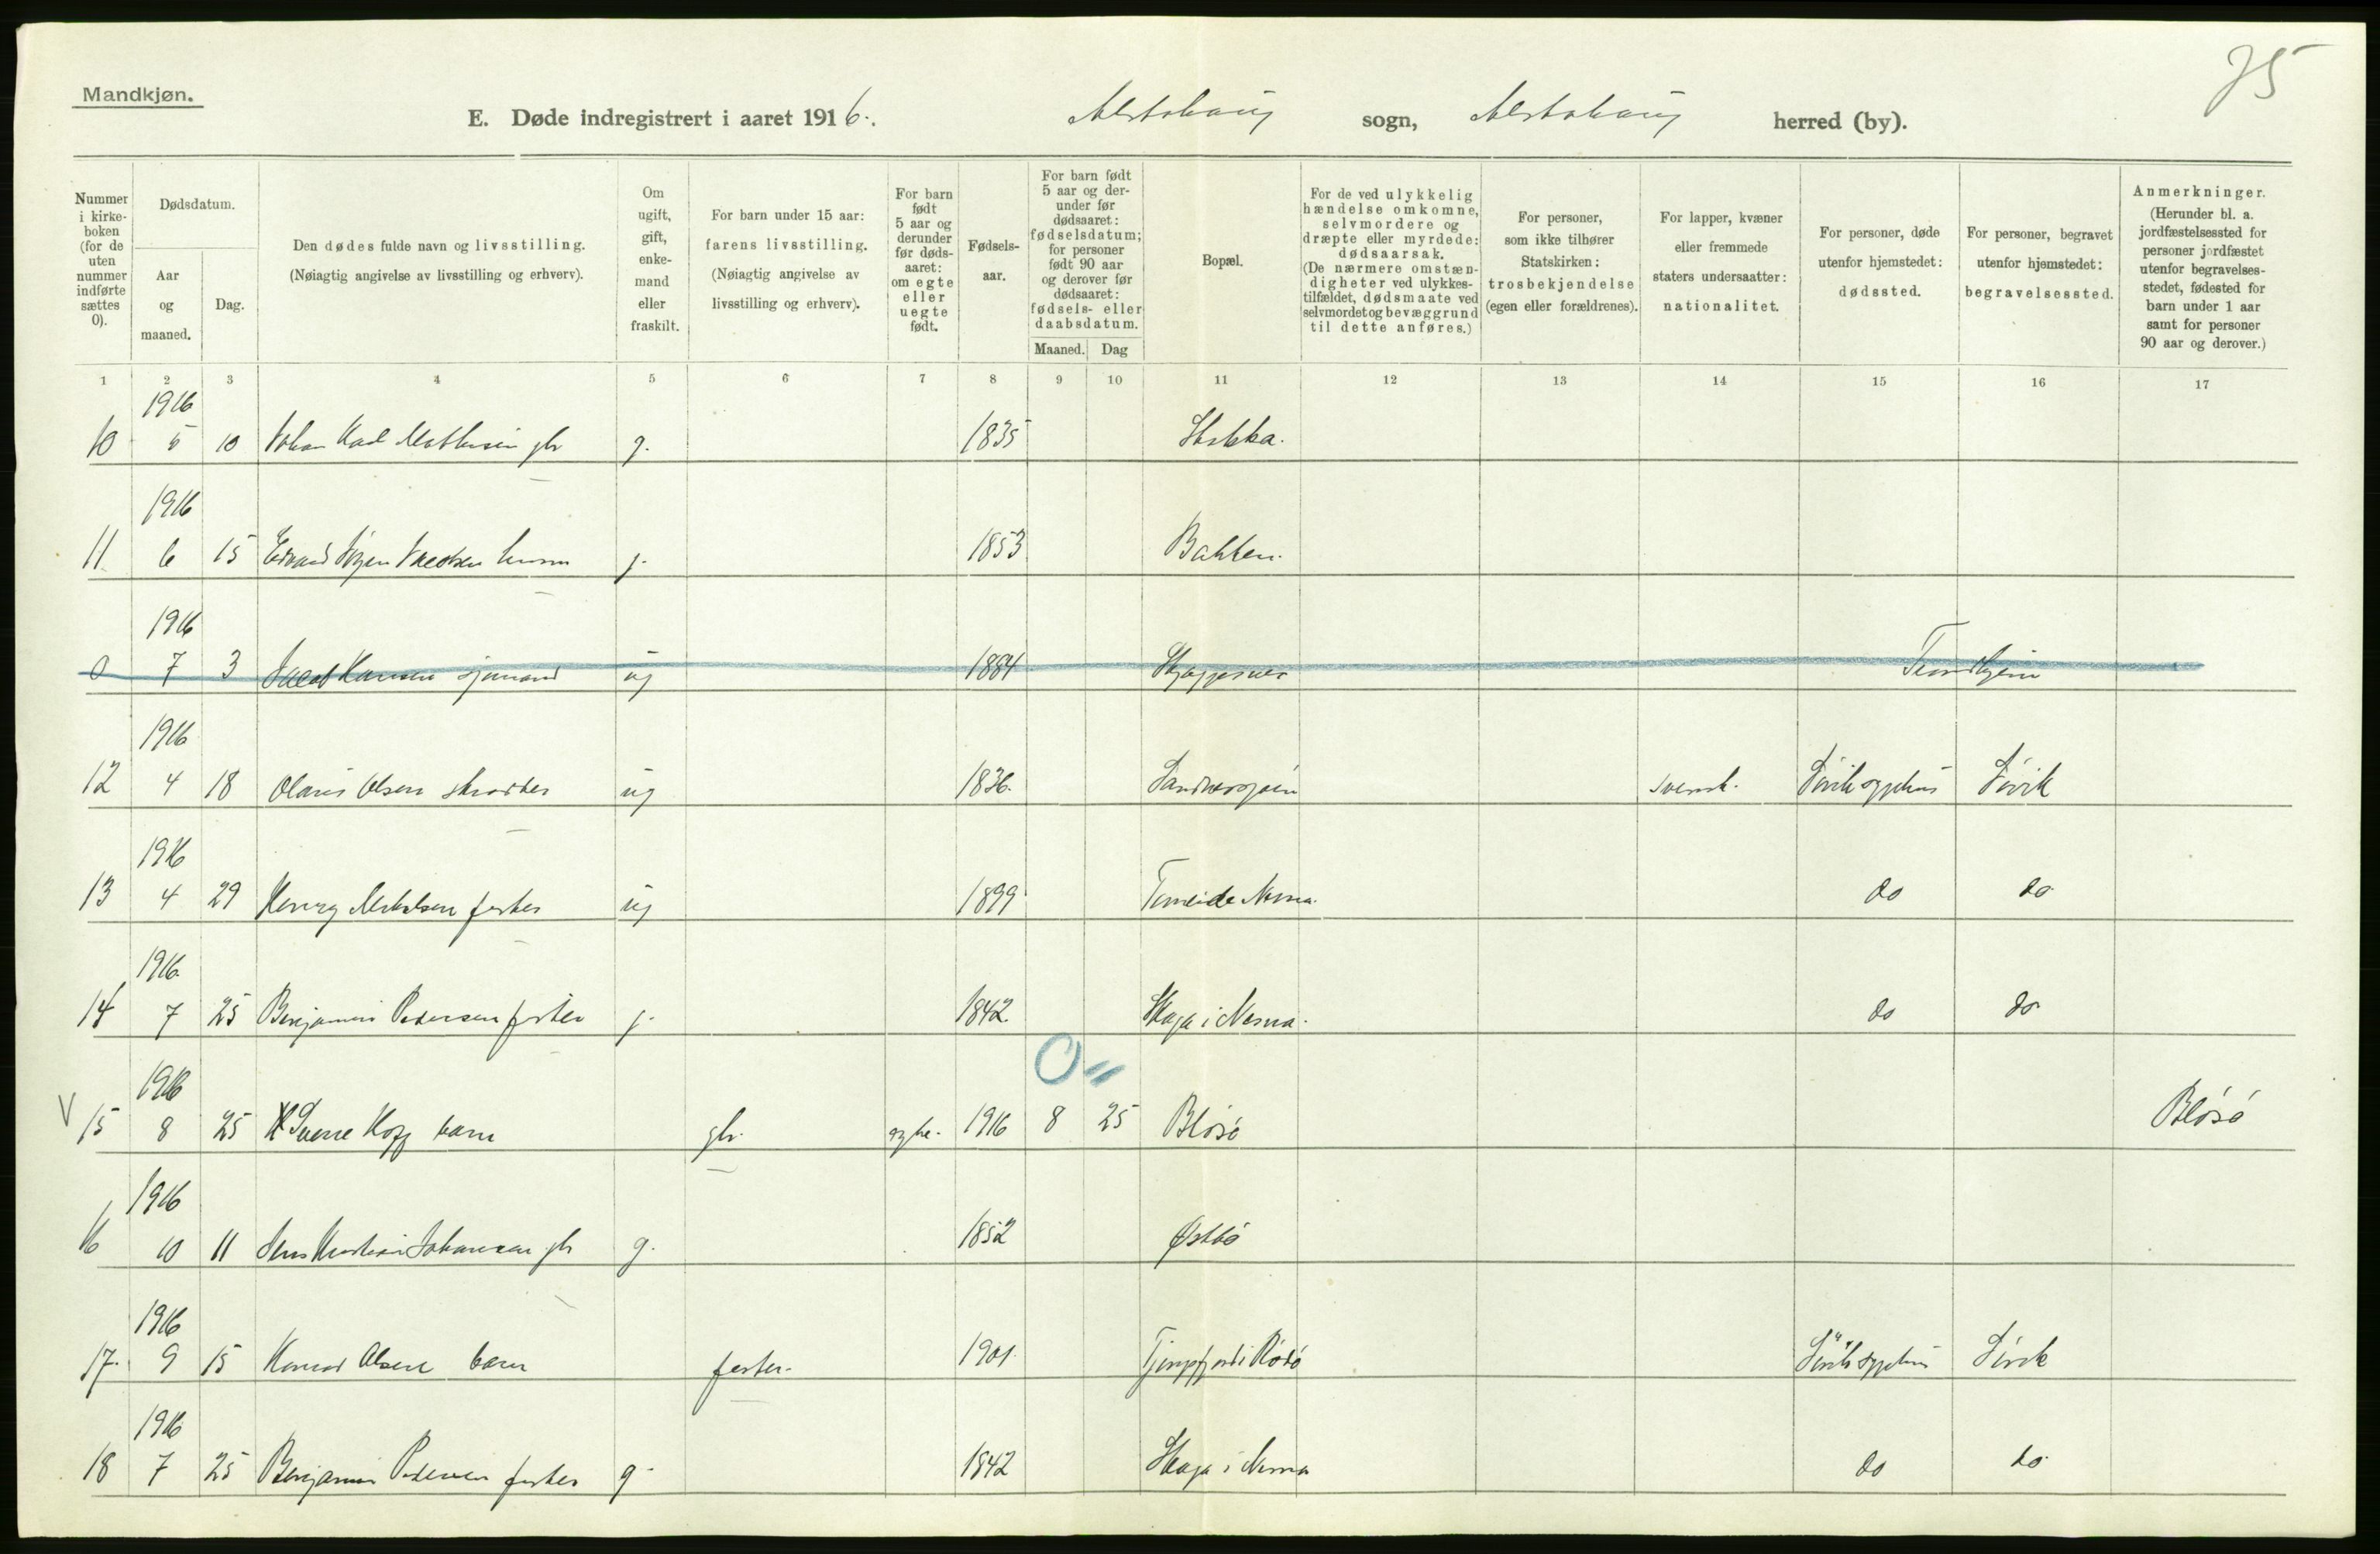 75
Mandkjøn.
E. Døde indregistrert i aaret 1916. Alstahaug sogn, Alstahaug herred (by).
Nummer i kirkeboken (for de uten nummer indførte sættes 0).
Dødsdatum.
Aar og maaned.
Dag.
Den dødes fulde navn og livsstilling.
(Nøiagtig angivelse av livsstilling og erhverv).
Om ugift, gift, enkemand eller fraskilt.
For barn under 15 aar: farens livsstilling.
(Nøiagtig angivelse av livsstilling og erhverv).
For barn født 5 aar og derunder før dødsaaret: om egte eller uegte født.
Fødselsaar.
For barn født 5 aar og derunder før dødsaaret: fødselsdatum; for personer født 90 aar og derover før dødsaaret: fødsels- eller daabsdatum.
Maaned. Dag
Bopæl.
For de ved ulykkelig hændelse omkomne, selvmordere og dræpte eller myrdede: dødsaarsak.
(De nærmere omstændigheter ved ulykkestilfældet, dødsmaate ved selvmordet og bevæggrund til dette anføres.)
For personer, som ikke tilhører Statskirken: trosbekjendelse (egen eller forældrenes).
For lapper, kvæner eller fremmede staters undersaatter: nationalitet.
For personer, døde utenfor hjemstedet: dødssted.
For personer, begravet utenfor hjemstedet: begravelsessted.
Anmerkninger.
(Herunder bl. a. jordfæstelsessted for personer jordfæstet utenfor begravelsesstedet, fødested for barn under 1 aar samt for personer 90 aar og derover.)
1 2 3 4 5 6 7 8 9 10 11 12 13 14 15 16 17
1916
10 5 10 Johan gbr g. 1835
1916
11 6 15 Edvard Jørgen Jacobsen g. 1853 Bakken.
1916
0 7 3 Jacob Hansen sjømand ug 1884 Trondhjem
1916
12 4 18 Olaus Olsen skrædder ug 1836. Sandnessjøen svensk. Søvik sygehus Søvik
1916
13 4 29 fisker ug 1899 Nesna. do do
1916
14 7 25 Benjamin Pedersen fisker g. 1842. Skaga i Nesna. do do
1916 0 "
V 15 8 25 Sverre barn gbr. egte. 1916 8 25 Blåsø Blåsø
1916
16 10 11 Jens Kristian Johansen gbr g. 1852 Østbø
1916
17. 9 15 Konrad Olsen barn fisker. 1901. i Rødø Søvik sygehus Søvik
1916
18 7 25 Benjamin Pedersen fisker g. 1842 Skaga i Nesna do do